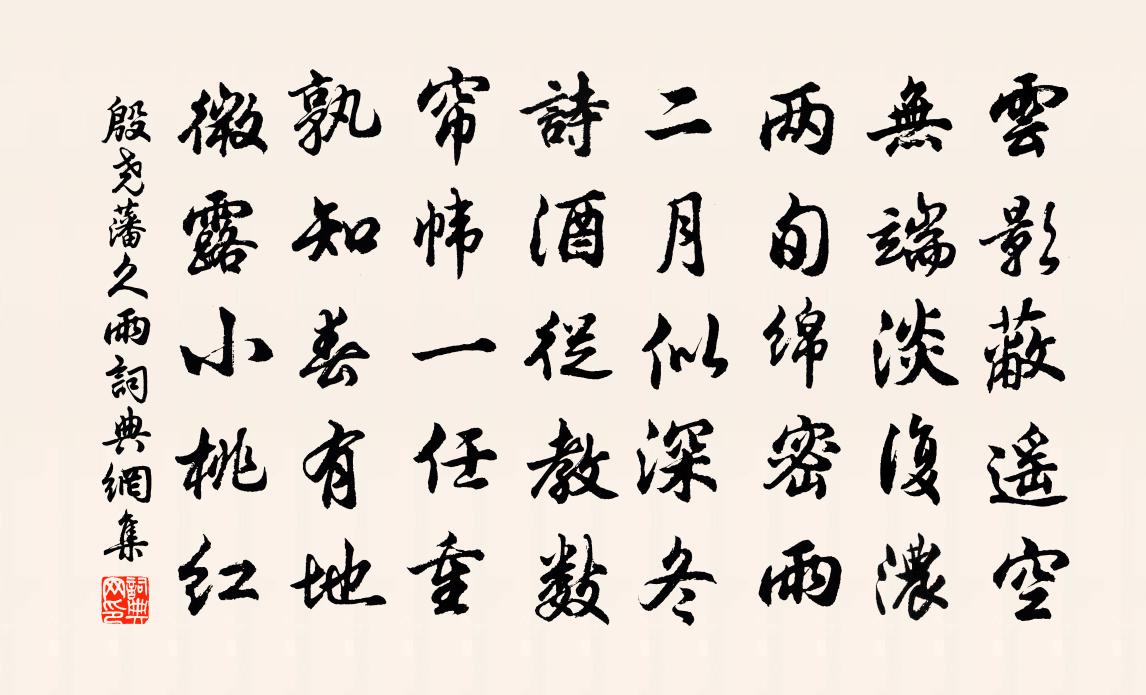 雲影蔽遥空
無端淡復濃
两旬绵密雨
二月似深冬
詩酒從教数
帘幃一任重
孰知春有地
微露小桃红
殷尧藩久雨詞典網集
詞典网印